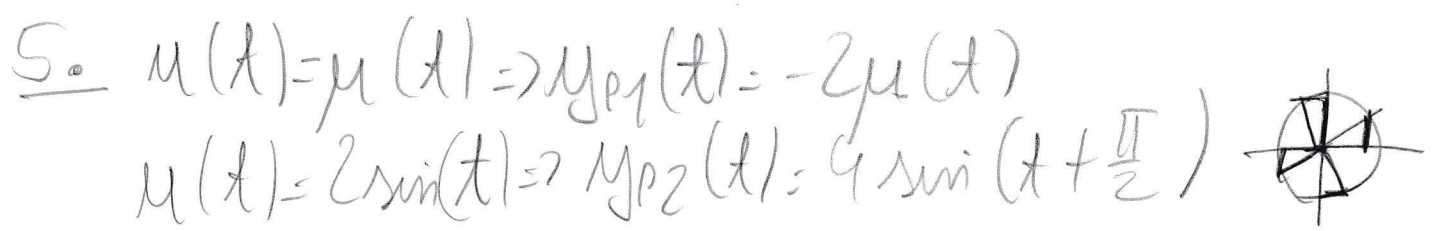 5. u(t)=μ(t) => yp1(t)= -2μ(t)
u(t)= 2sin(t) => yp2(t)= 4 sin(t + π/2)